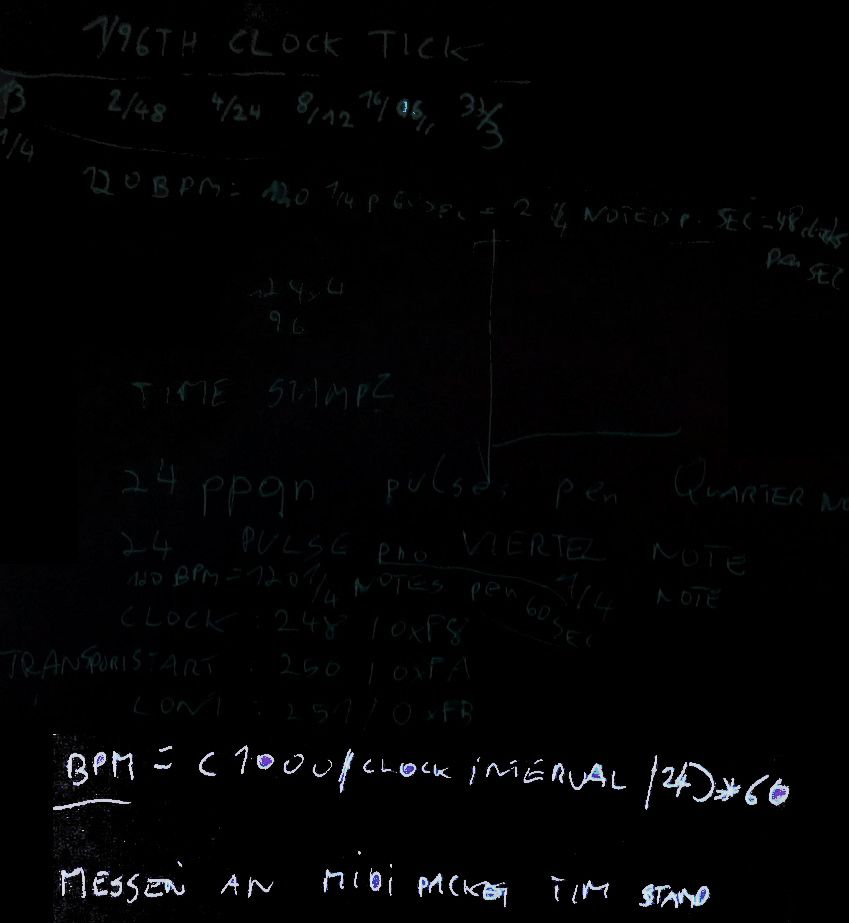 1/96TH CLOCK TICK
2/48 4/24 8/12 16/06 32/3
1/4
120 BPM = 120 1/4 = 2 1/4 NOTES P. SEC = 48 clocks
per SEC
24 x 4
96
TIME STAMP?
24 ppqn pulses per QUARTER NO
24 PULSE pro VIERTEL NOTE
120 BPM = 120 1/4 NOTES per 1/4 NOTE
60 SEC
CLOCK : 248 / 0xF8
TRANSPORT START : 250 / 0xFA
CONT : 251 / 0xFB
BPM = (1000/CLOCK INTERVAL /24)*60
MESSEN AN MIDI PACKET TIM STAMP